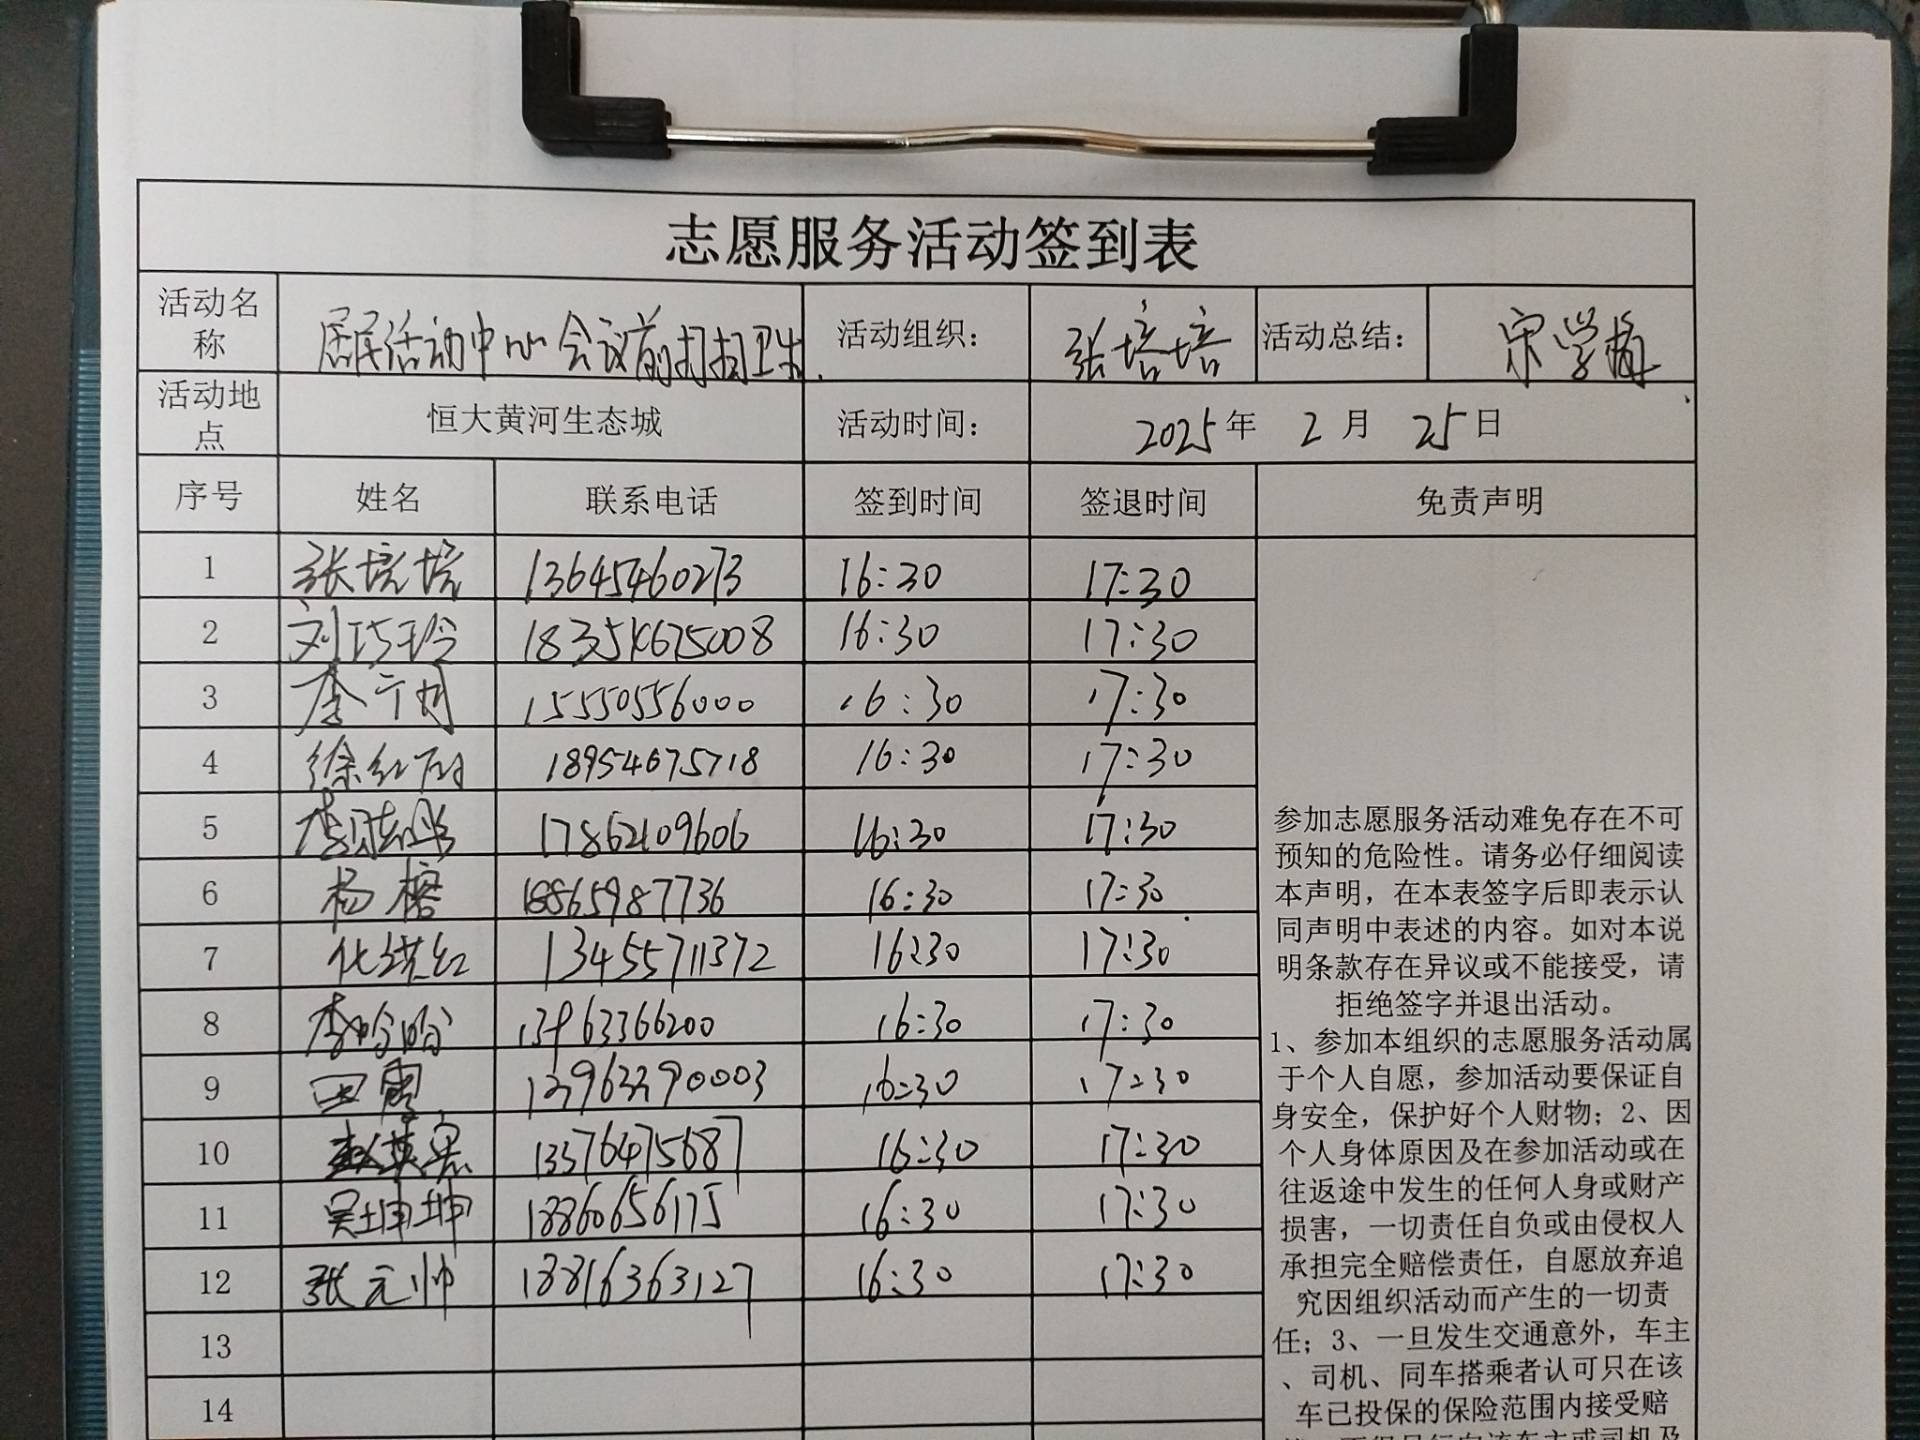 志愿服务活动签到表
活动名称 居民活动中心会议前打扫卫生. 活动组织: 张培培 活动总结: 宋学梅
活动地点 恒大黄河生态城 活动时间: 2025年 2月 25日
序号 姓名 联系电话 签到时间 签退时间 免责声明
1 张培培 13645460273 16:30 17:30
2 刘巧玲 16:30 17:30
3 李宁 15550556000 16:30 17:30
4 徐红 18954675718 16:30 17:30
5 李 17862109606 16:30 17:30
6 杨榕 18865987736 16:30 17:30
7 化洪红 13455711372 16:30 17:30
8 李哈哈 13963366200 16:30 17:30
9 田震 16:30 17:30
10 赵英 13376475687 16:30 17:30
11 吴坤坤 18860656175 16:30 17:30
12 张元帅 18816363127 16:30 17:30
13
14
参加志愿服务活动难免存在不可
预知的危险性。请务必仔细阅读
本声明，在本表签字后即表示认
同声明中表述的内容。如对本说
明条款存在异议或不能接受，请
拒绝签字并退出活动。
1、参加本组织的志愿服务活动属
于个人自愿，参加活动要保证自
身安全，保护好个人财物；2、因
个人身体原因及在参加活动或在
往返途中发生的任何人身或财产
损害，一切责任自负或由侵权人
承担完全赔偿责任，自愿放弃追
究因组织活动而产生的一切责
任；3、一旦发生交通意外，车主
、司机、同车搭乘者认可只在该
车已投保的保险范围内接受赔